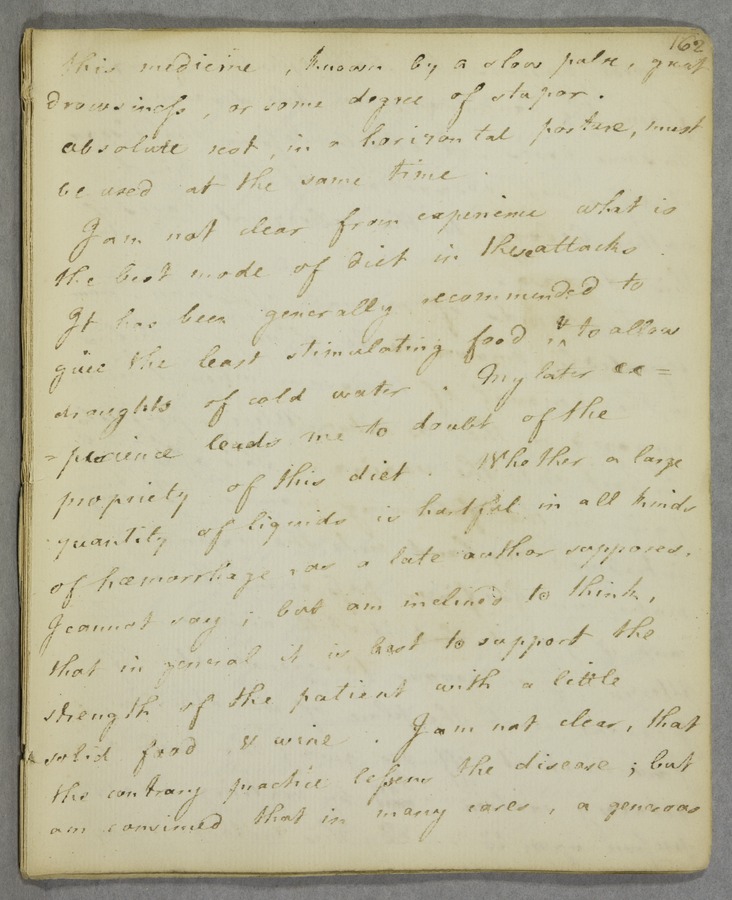 162
this medicine, known by a slow pulse, great
drowsiness, or some degree of stupor.
absolute rest, in a horizontal posture, must
be used at the same time.
I am not clear from experience what is
the best mode of diet in these attacks.
It has been generally recommended to
give the least stimulating food & to allow
draughts of cold water. My later ex=
=perience leads me to doubt of the
propriety of this diet. Whether a large
quantity of liquids is hurtful in all kinds
of hæmorrhage, as a late author supposes,
I cannot say; but am inclined to think,
that in general it is best to support the
strength of the patient with a little
solid food & wine. I am not clear, that
the contrary practice lessens the disease; but
am convinced that in many cases, a generous